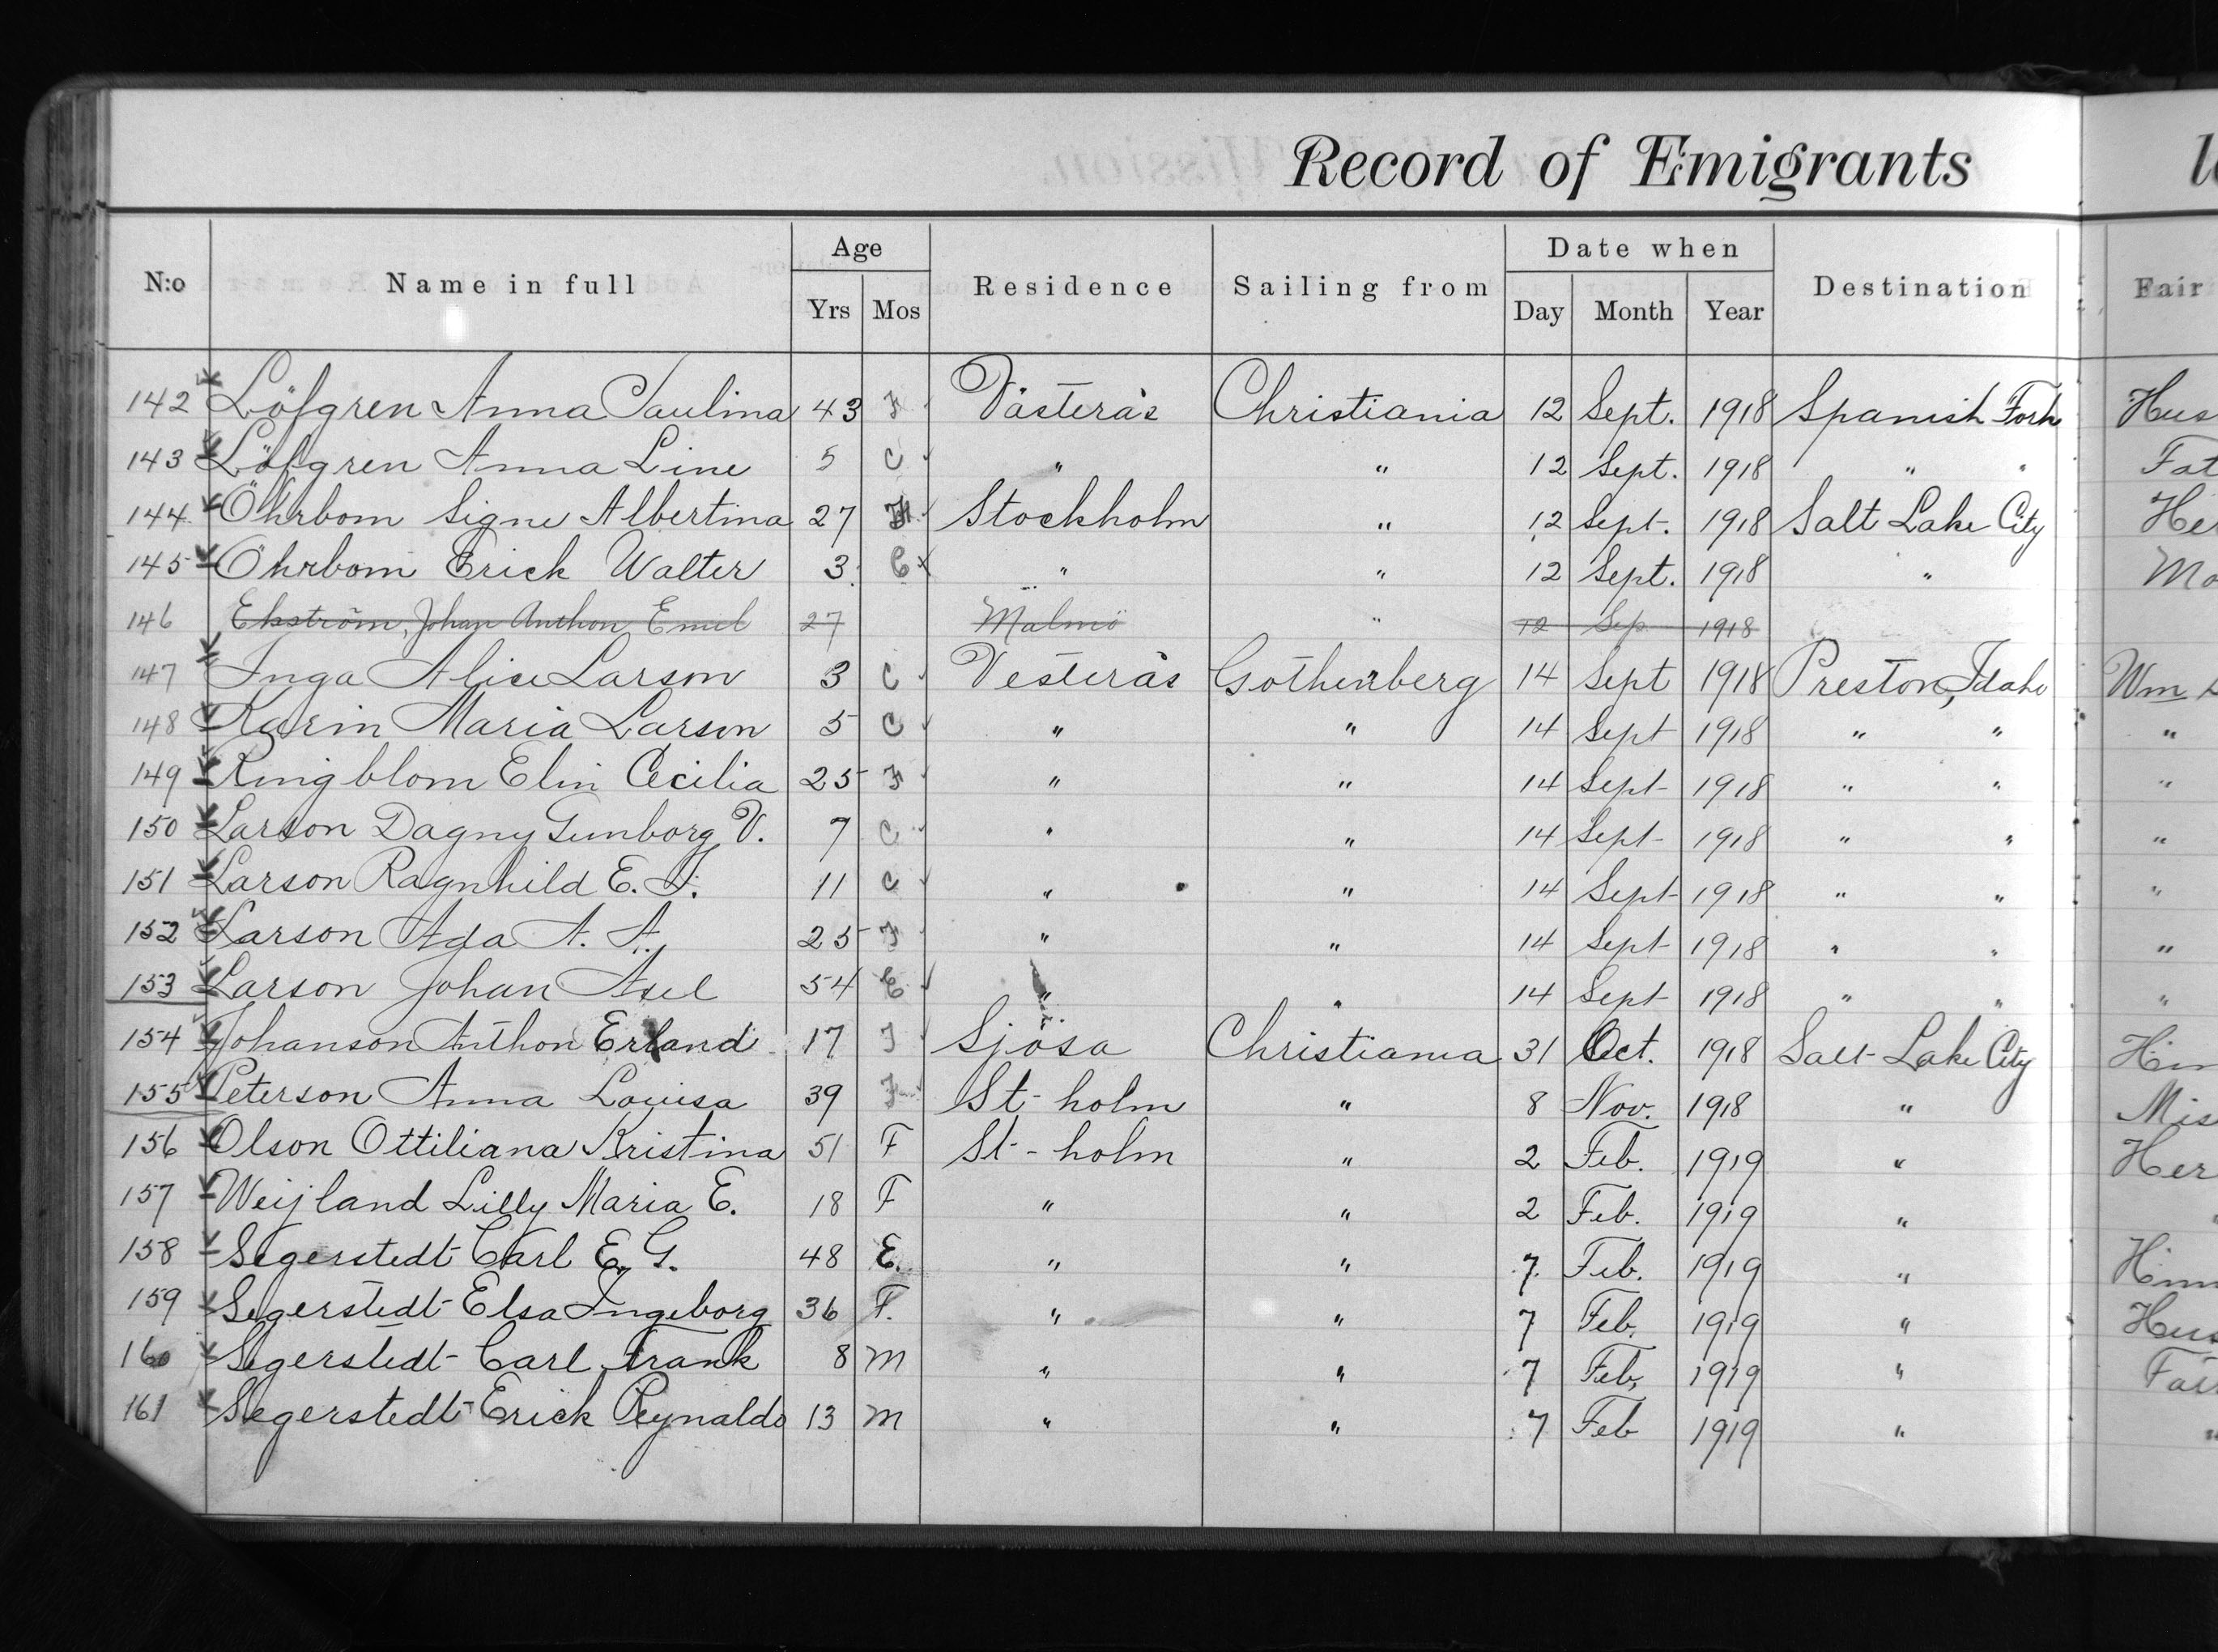 Record of Emigrants
Age Date when
N:o Name in full Residence Sailing from Destination Fair
Yrs Mos Day Month Year
142 Löfgren Anna Paulina 43 F Västerås Christiania 12 Sept. 1918 Spanish Fork Hus
143 Löfgren Anna Line 5 C " " 12 Sept. 1918 " " Fat
144 Öhrbom Signe Albertina 27 F Stockholm " 12 Sept. 1918 Salt Lake City Her
145 Öhrbom Erick Walter 3 C " " 12 Sept. 1918 " Mo
146 Ekström, Johan Anthon Emil 27 Malmö " 12 Sep 1918
147 Inga Alice Larson 3 C Vesterås Gothenberg 14 Sept 1918 Preston, Idaho Wm
148 Karin Maria Larson 5 C " " 14 Sept 1918 " " "
149 Ringblom Elin Cecilia 25 F " " 14 Sept 1918 " " "
150 Larson Dagny Gunborg V. 7 C " " 14 Sept 1918 " " "
151 Larson Ragnhild E. T. 11 C " " 14 Sept 1918 " " "
152 Larson Ada A. A. 25 F " " 14 Sept 1918 " " "
153 Larson Johan Axel 54 E " " 14 Sept 1918 " " "
154 Johanson Anthon Erland 17 Sjösa Christiania 31 Oct. 1918 Salt Lake City Him
155 Peterson Anna Louisa 39 F St-holm " 8 Nov. 1918 " Mis
156 Olson Ottiliana Kristina 51 F St-holm " 2 Feb. 1919 " Her
157 Weijland Lilly Maria E. 18 F " " 2 Feb. 1919 "
158 Segerstedt Carl E. G. 48 E. " " 7 Feb. 1919 " Him
159 Segerstedt Elsa Ingeborg 36 F. " " 7 Feb. 1919 " Hus
160 Segerstedt Carl Frank 8 M " " 7 Feb. 1919 " Fat
161 Segerstedt Erick Reynaldo 13 M " " 7 Feb 1919 " "